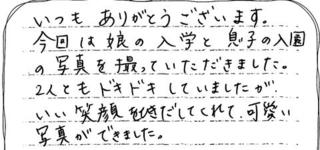 いつも ありがとうございます。
今回は娘の入学と息子の入園
の写真を撮っていただきました。
2人ともドキドキしていましたが、
いい笑顔を引きだしてくれて、可愛い
写真ができました。